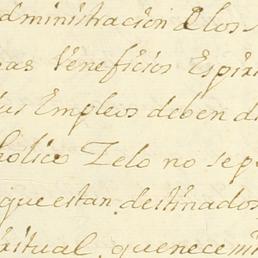 administracion de los
mas Veneficios Espiri
sus Empleos deben di
holico Zelo no sep
que estan destinados
iritual, que necemi